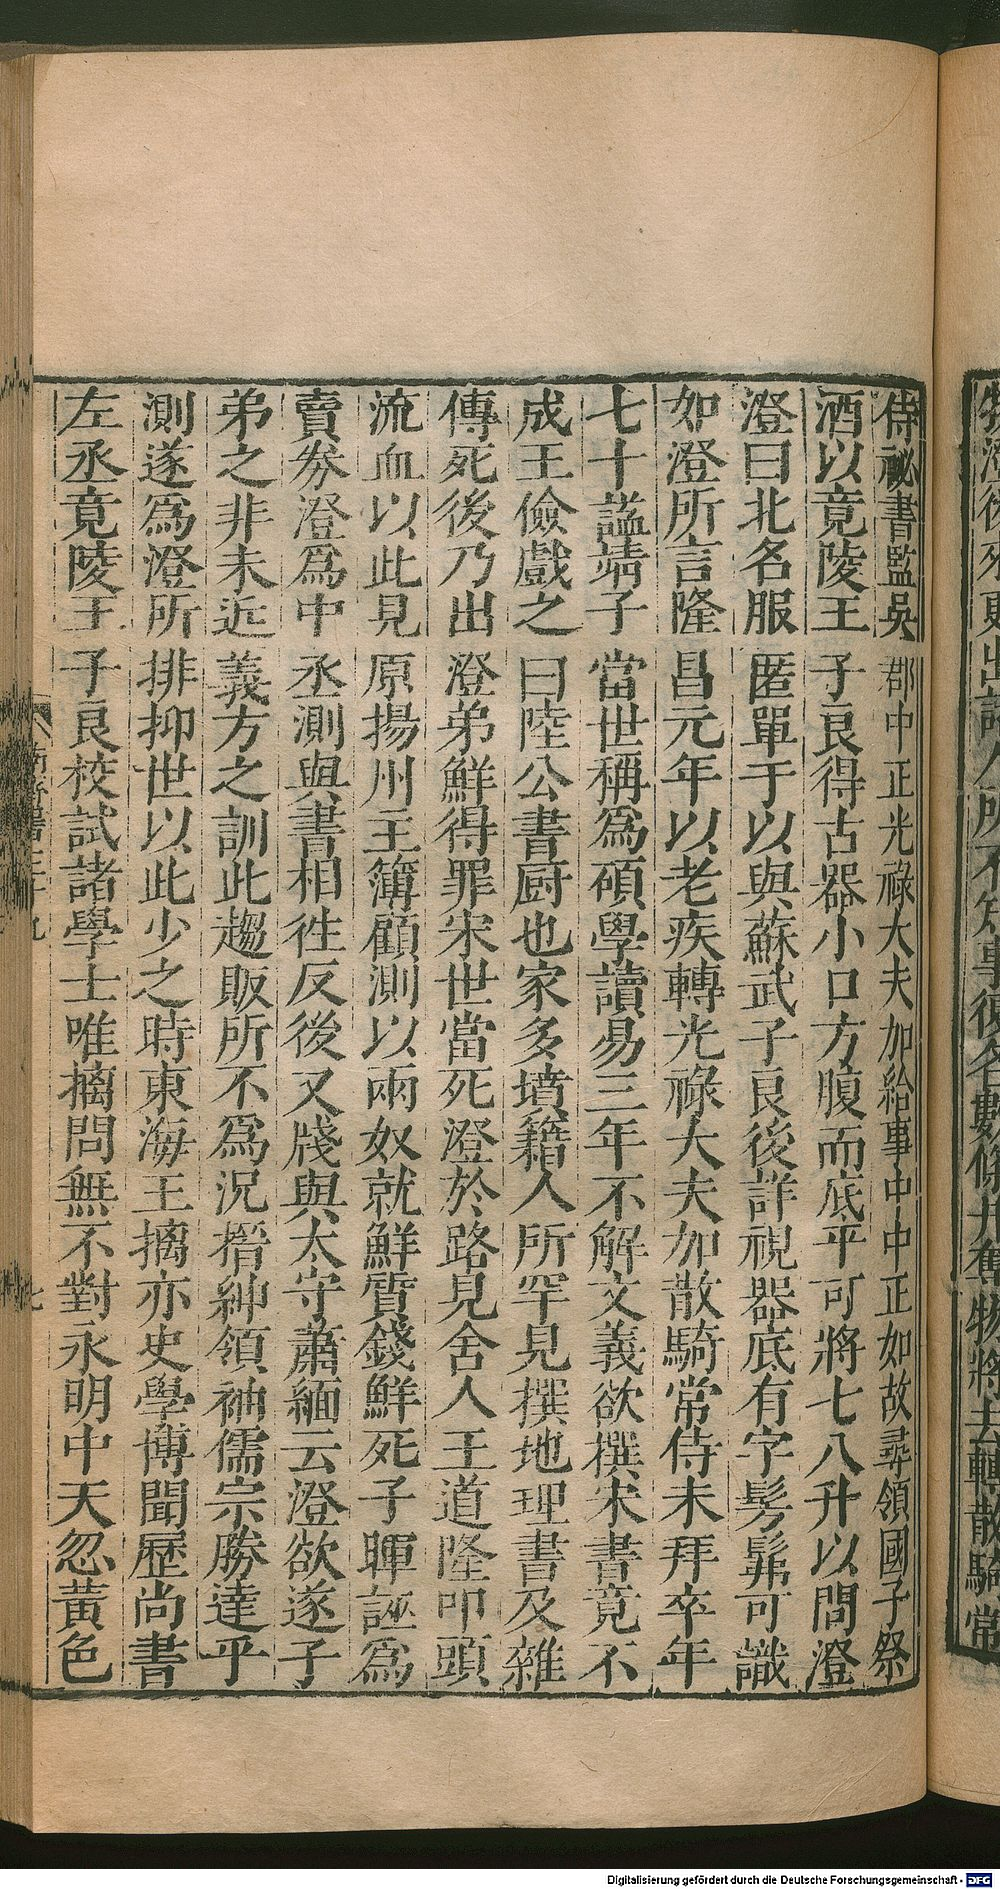 物澄後來更出諸人所不知事復各數條并奪物將去轉散騎常
侍祕書監吳郡中正光祿大夫加給事中中正如故尋領國子祭
酒以竟陵王子良得古器小口方腹而底平可將七八升以問澄
澄曰北名服匿單于以與蘇武子良後詳視器底有字髣髴可識
如澄所言隆昌元年以老疾轉光祿大夫加散騎常侍未拜卒年
七十諡靖子當世稱爲碩學讀易三年不解文義欲撰宋書竟不
成王儉戲之曰陸公書厨也家多墳籍人所罕見撰地理書及雜
傳死後乃出澄弟鮮得罪宋世當死澄於路見舍人王道隆叩頭
流血以此見原揚州主簿顧測以兩奴就鮮質錢鮮死子暉誣爲
賣券澄爲中丞測與書相徃反後又牋與太守蕭緬云澄欲遂子
弟之非未近義方之訓此趨販所不爲況搢紳領袖儒宗勝達乎
測遂爲澄所排抑世以此少之時東海王摛亦史學博聞歷尚書
左丞竟陵王子良校試諸學士唯摛問無不對永明中天忽黃色
南齊書三十九
七
Digitalisierung gefördert durch die Deutsche Forschungsgemeinschaft - DFG